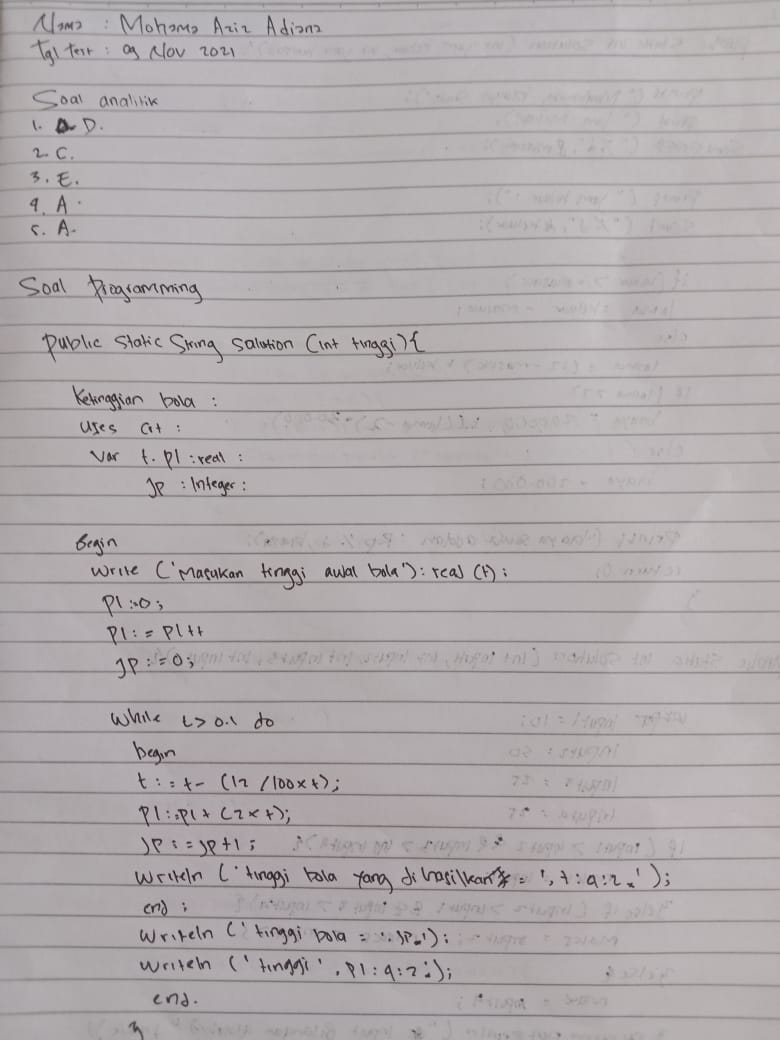 Nama : Mohama Aziz Adiana
Tgl Test : 09 Nov 2021
Soal analitik
1. D.
2. C.
3. E.
4. A.
5. A.
Soal Programming
Public Static String Solution (int tinggi){
Ketinggian bola :
Uses Crt :
Var t. pl : real :
Jp : Integer :
Begin
Write ('Masukan tinggi awal bola') : read (t) ;
Pl := 0 ;
Pl := Pl ++
Jp := 0 ;
While t > 0.1 do
begin
t := t - (12 /100 x t) ;
Pl := pl + (2 x t) ;
Jp := Jp + 1 ;
Writeln (' tinggi bola yang dihasilkan = ', t : 4 : 2 .') ;
end ;
Writeln (' tinggi bola = Jp ') ;
Writeln (' tinggi ', Pl : 4 : 2 ) ;
end.
}